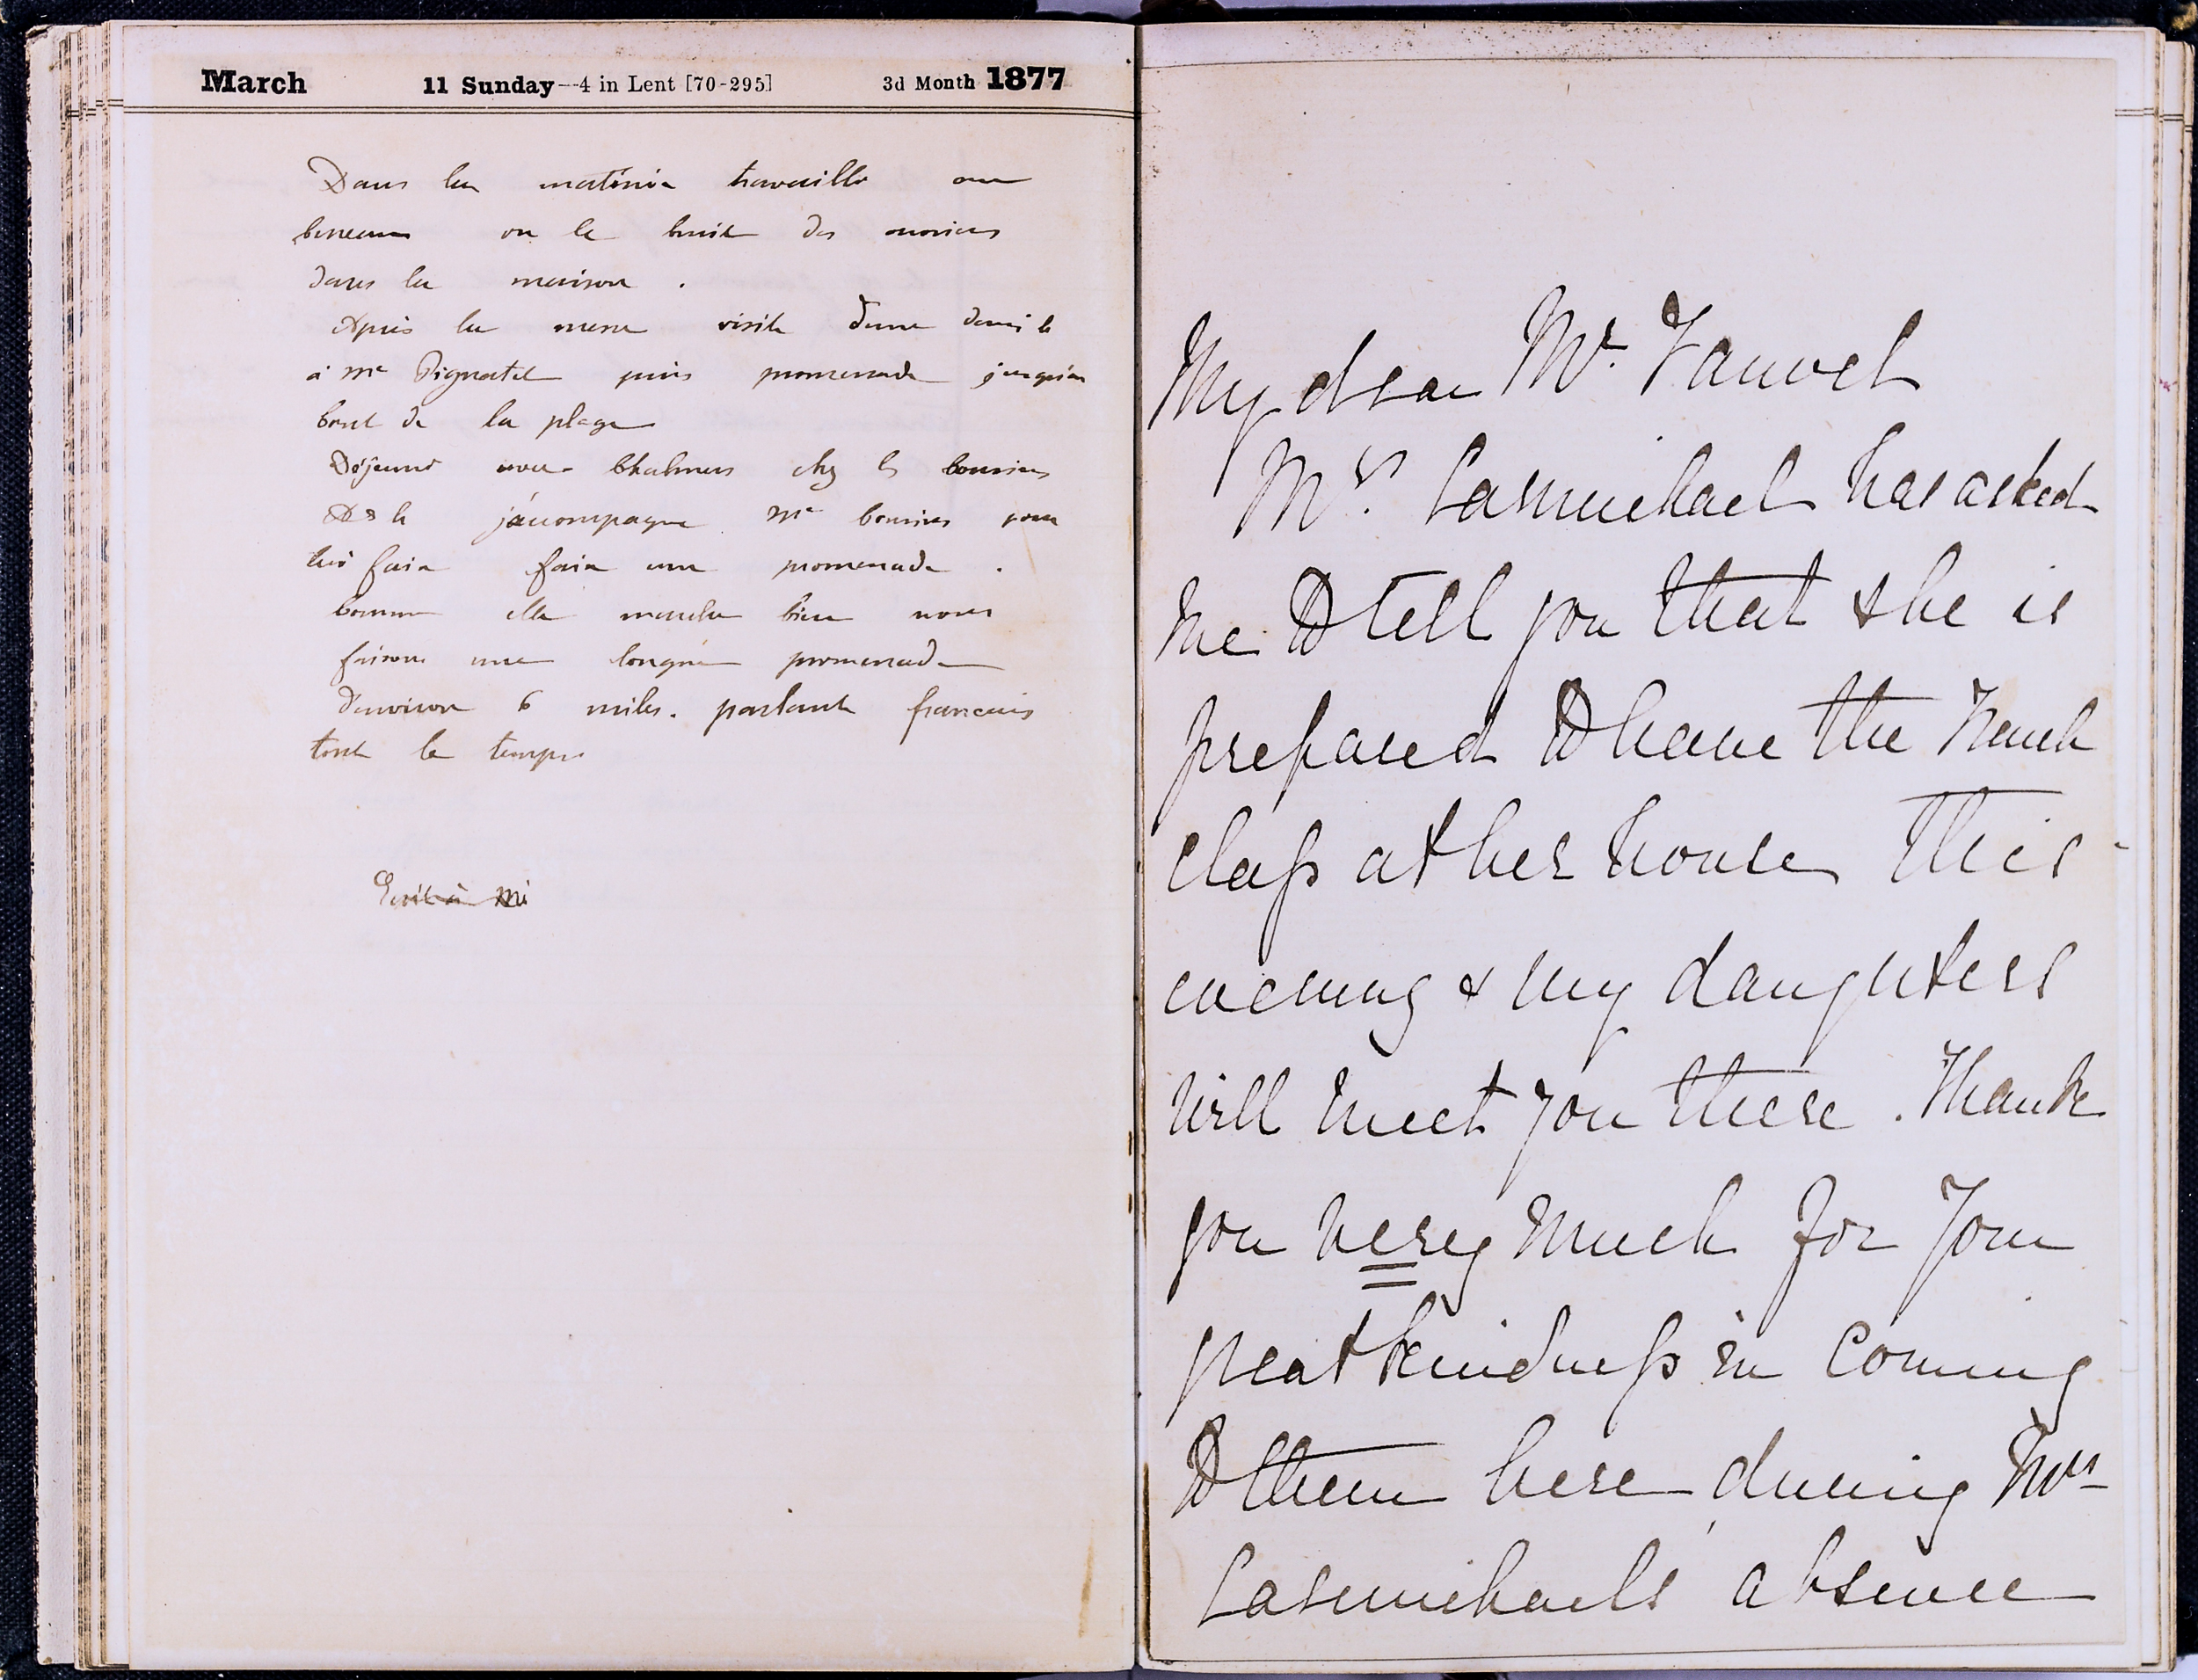 March 11 Sunday--4 in Lent [70-295] 3d Month 1877
Dans la matinée travaillé au
bureau vu le bruit des
dans la maison .
Après la messe visite d'une
à Me Pignatel puis promenade jusqu'au
bout de la plage
Déjeuné avec Chalmers chez les Cousins
De là j'accompagne Me Cousins pour
lui faire faire une promenade .
Comme elle marche bien nous
faisons une longue promenade
d'environ 6 miles. parlant francais
tout le temps
Ecrit à Mi
My dear Mr. Fauvel
Mrs. Carmichael has asked
me to tell you that she is
prepared to have the French
class at her house this
evening & my daughters
will meet you there. Thank
you very much for your
great kindness in coming
to them here during Mrs
Carmichaels absence